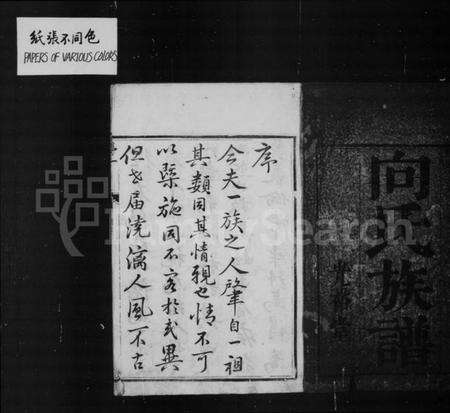 紙張不同色
PAPERS OF VARIOUS COLORS
向氏族譜
序
今夫一族之人肇自一祖
其類同其情親也情不可
以槩施固不容於或異
但世届澆漓人風不古
FamilySearch